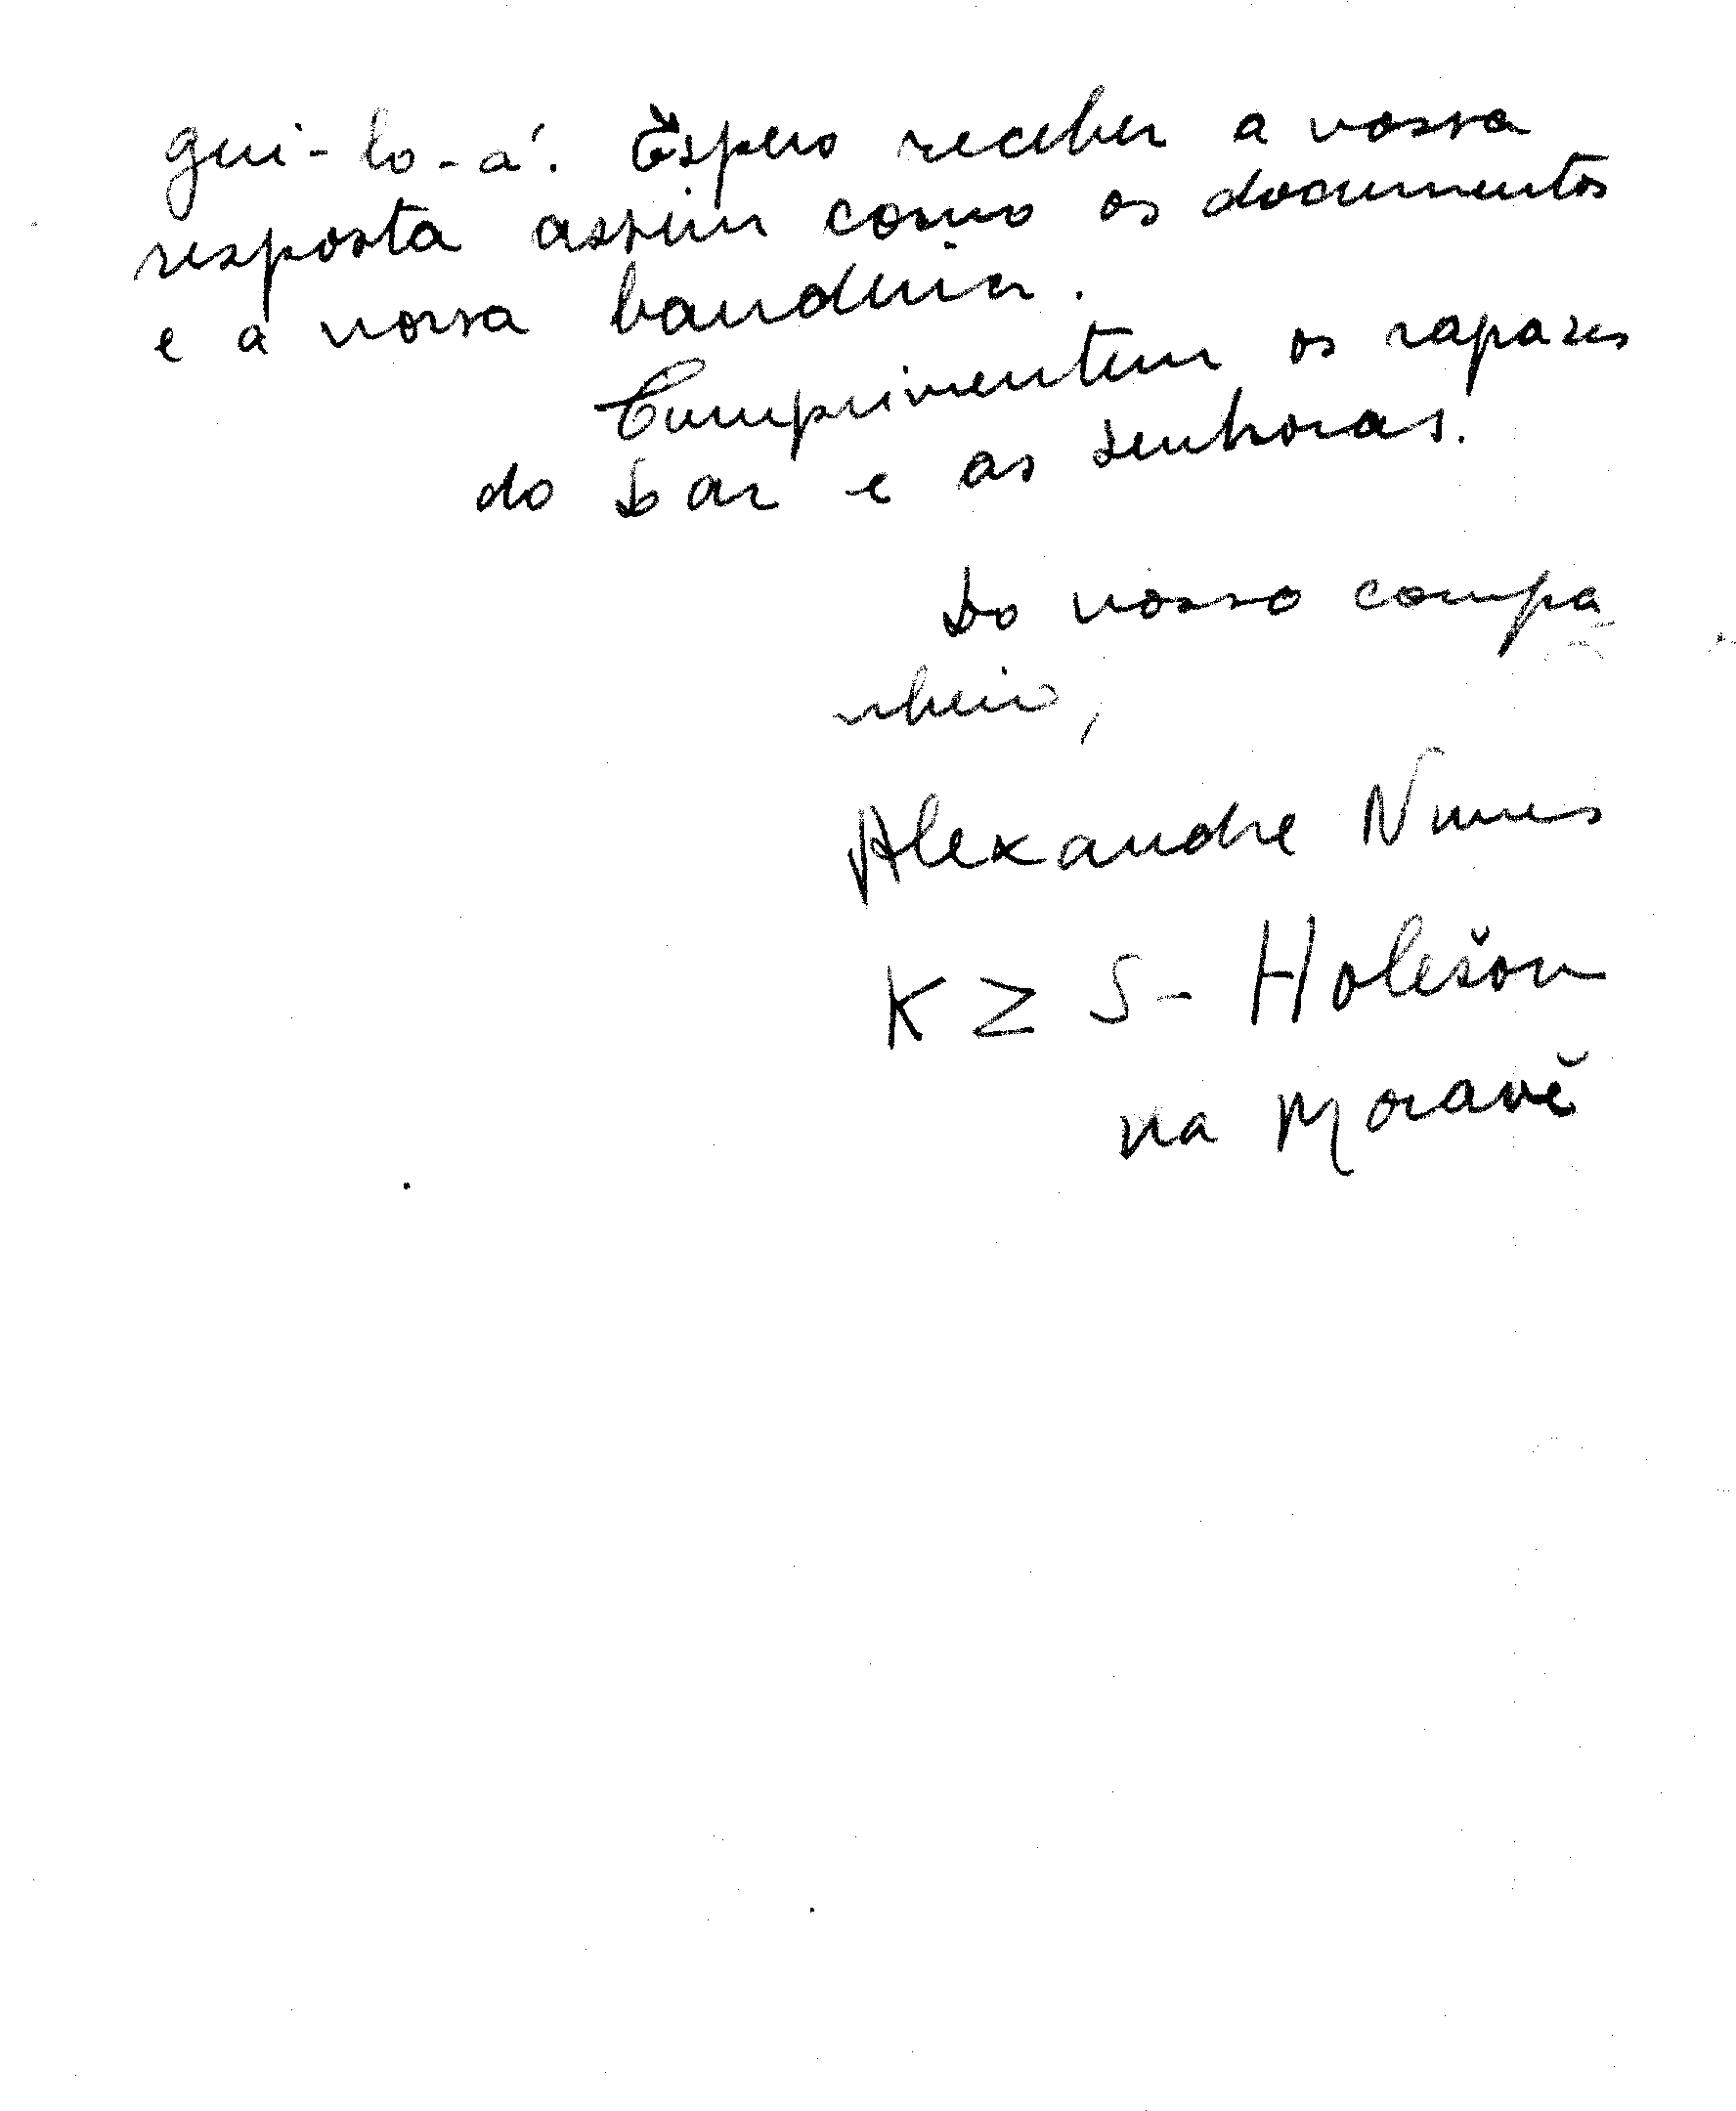 gui-lo-á. Espero receber a vossa
resposta assim como os documentos
e a vossa bandeira.
Cumprimentem os rapazes
do bar e as senhoras.
Do vosso compa
nheiro,
Alexandre Nunes
KZ S- Holešov
na Moravě